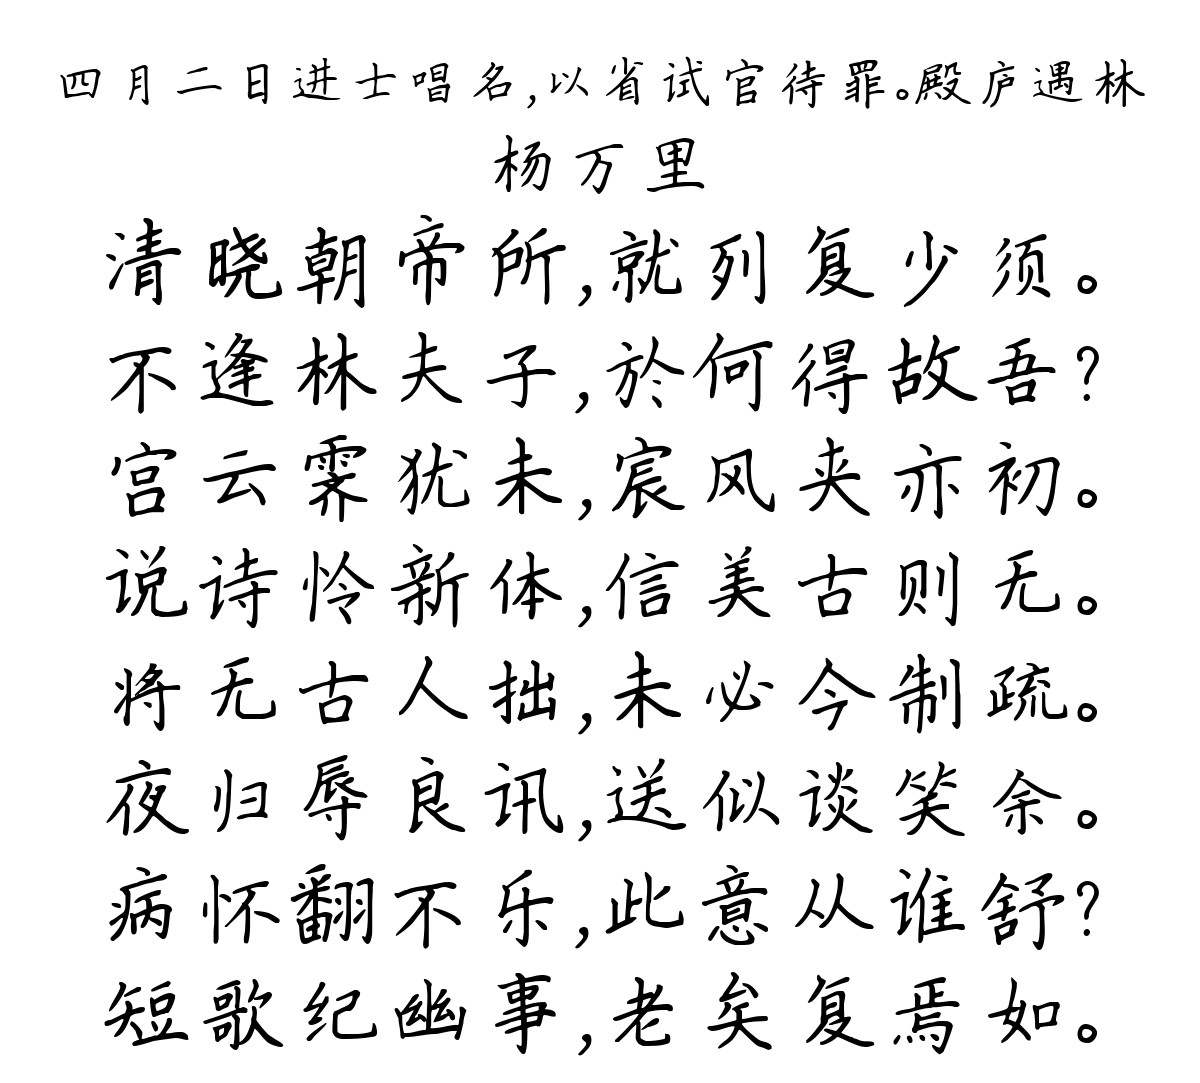 四月二日进士唱名,以省试官待罪。殿庐遇林
杨万里
清晓朝帝所,就列复少须。
不逢林夫子,於何得故吾?
宫云霁犹未,宸风夹亦初。
说诗怜新体,信美古则无。
将无古人拙,未必今制疏。
夜归辱良讯,送似谈笑余。
病怀翻不乐,此意从谁舒?
短歌纪幽事,老矣复焉如。